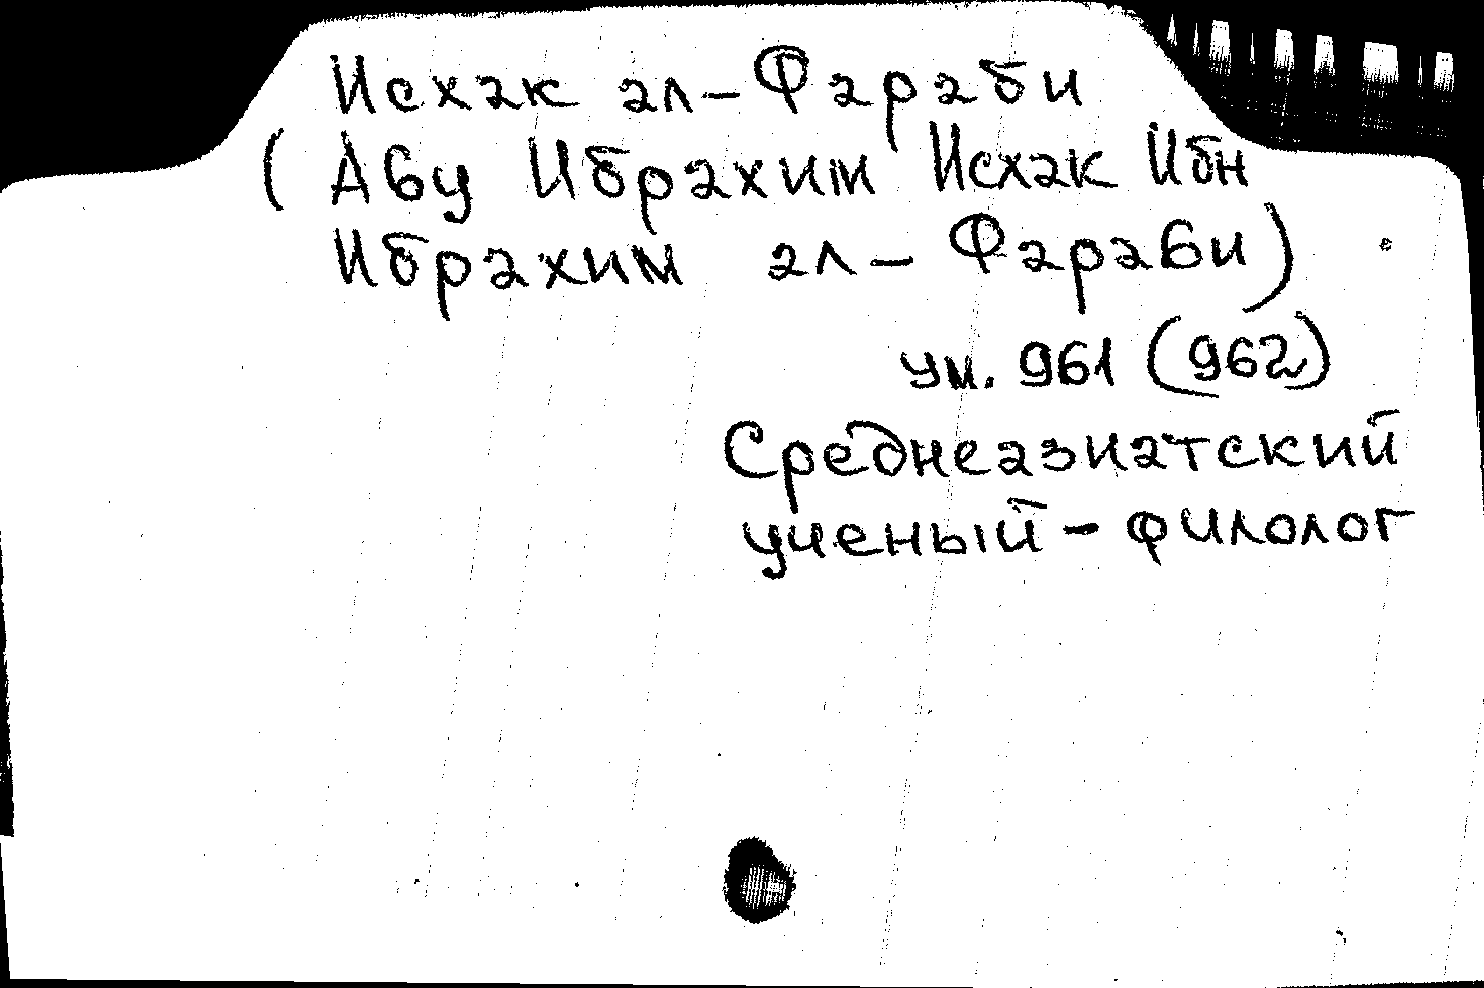 Исхак ал-Фараби
(Абу Ибрахим Исхак Ибн
Ибрахим ал-Фараби)
ум. 961 (962)
Среднеазиатский
ученый-филолог